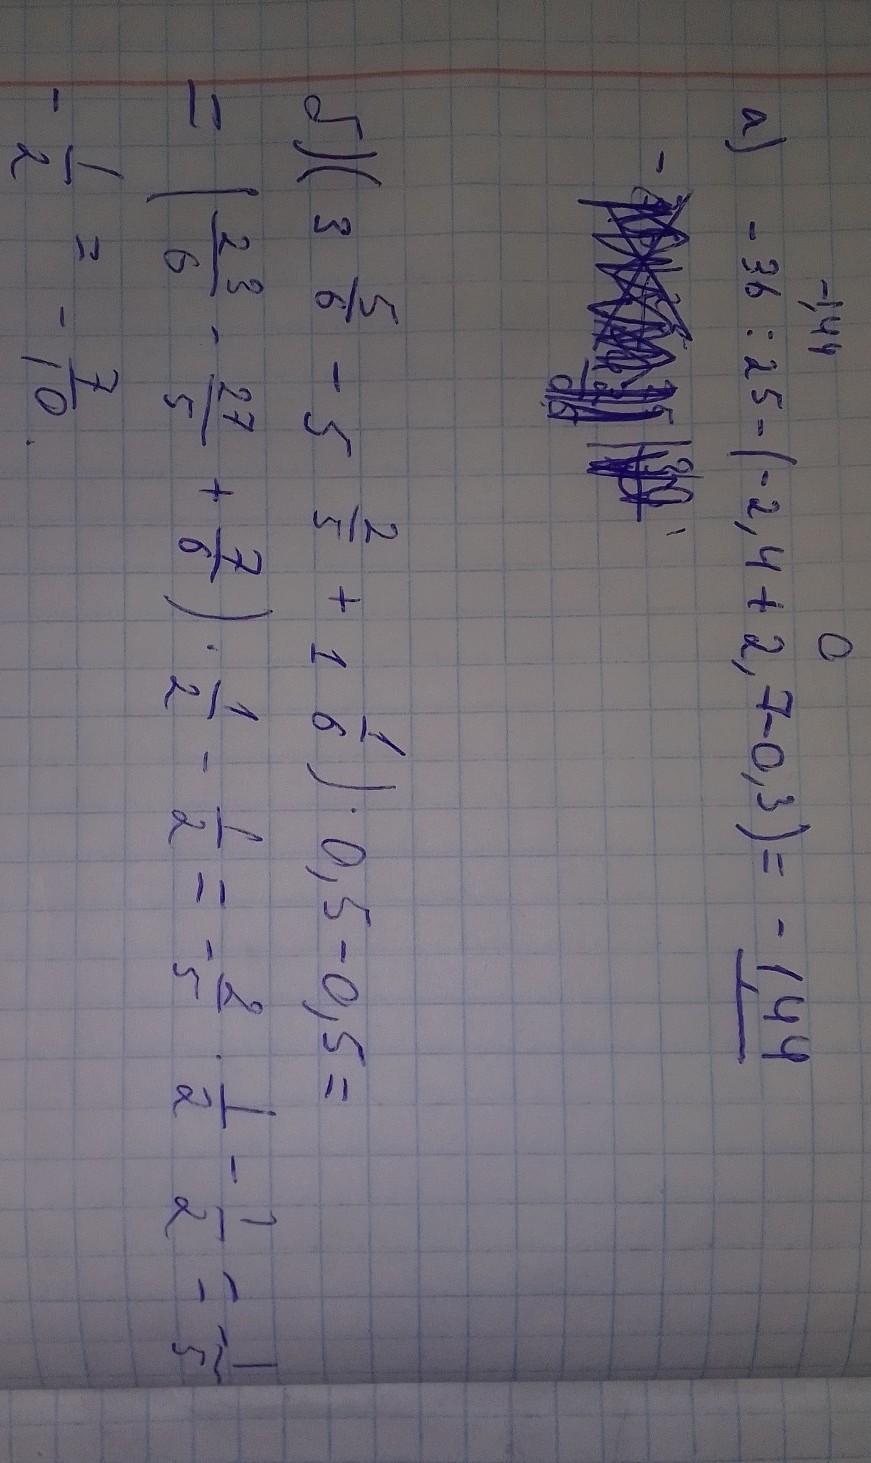 -1,44 0
а) -36 : 25 - (-2,4 + 2,7 - 0,3) = -1,44
б) (3 5/6 - 5 2/5 + 1 1/6) · 0,5 - 0,5 =
= (23/6 - 27/5 + 7/6) · 1/2 - 1/2 = -2/5 · 1/2 - 1/2 = -1/5
- 1/2 = - 7/10.